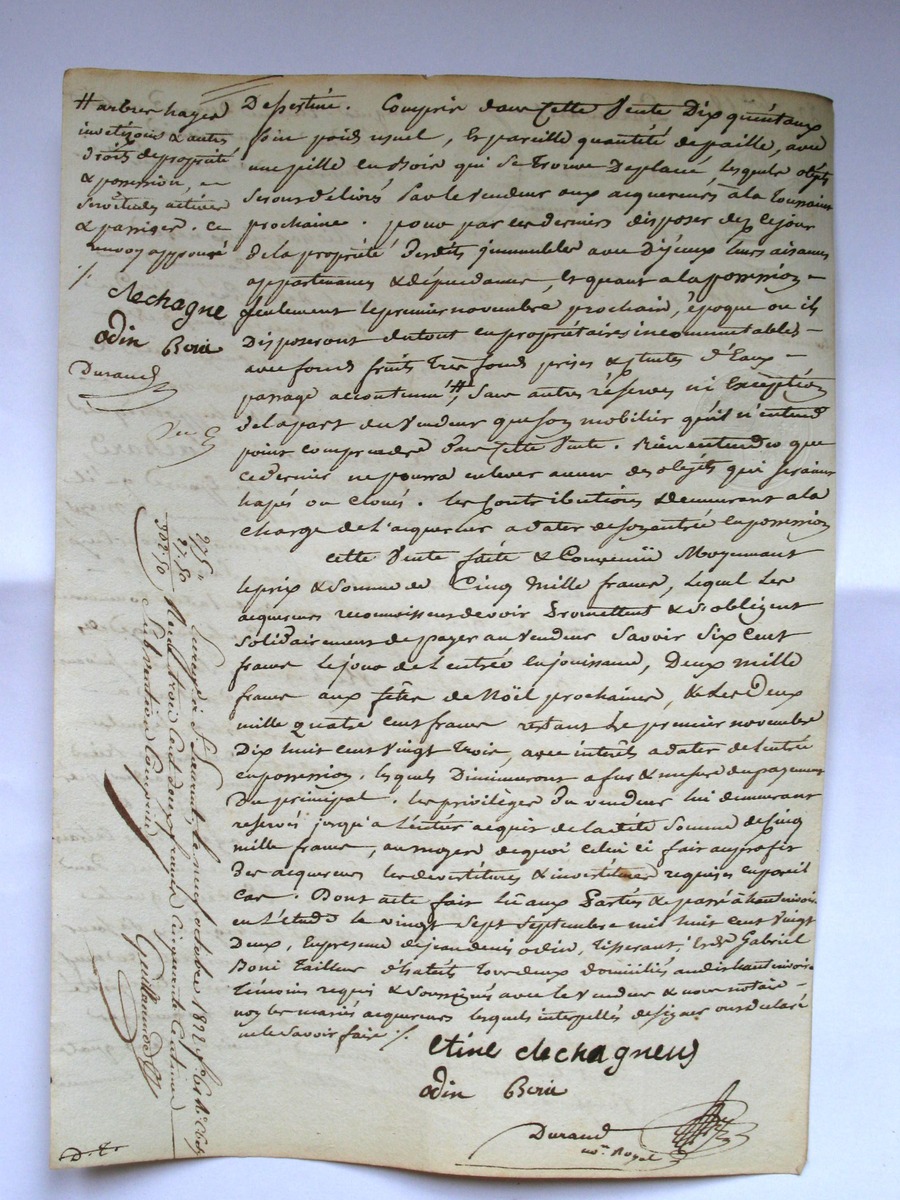 # arbres hayes
invetizon & autres
droits de propriété
& possession, en
servitudes actives
& passives. Ce
renvoy approuvé
./.
dechagne
odin Bonie
Durand
Dessertine. Compris dans cette Vente Dix quintaux
foin poids usuel, & pareille quantité de paille, avec
une pille en Bois qui se trouve Deplacé, lesquels objets
seront délivrés Par le Vendeur aux acquereurs à la toussaint
prochaine. pour par ces derniers disposer dez ce jour
de la propriété desdits immeubles avec D'iceux leurs aisances
appartenances & dépendances, & quant a la possession
seulement le premier novembre prochain, époque ou ils
Disposeront du tout en propriétaires incommutables
avec fonds fruits Très fonds prises & chutes d'Eaux
passage accoutumé #, Sans autres réserves ni Exception
de la part du Vendeur que son mobilier qu'il n'entend
point comprendre dans cette Vente. Bien entendu que
ce dernier ne pourra enlever aucun des objets qui seraient
hapés ou cloués. les Contributions demeurant a la
charge de l'acquereur a dater de son entrée en possession
cette Vente faite & Convenue Moyennant
le prix & Somme de Cinq mille francs, lequel Les
acquereurs reconnoissent devoir Promettent & s'obligent
Solidairement de payer au Vendeur Savoir Six Cent
francs le jour de l'entrée en jouissance, Deux mille
francs aux fêtes de Noël prochaines, & Les Deux
mille quatre cent francs restant Le premier novembre
Dix huit cent Vingt Trois, avec intérêts a dater de l'entrée
en possession. lesquels Diminueront a fur & mesure du payement
Du principal. les privilèges du vendeur lui demeurant
reservés jusqu'a L'entier acquit de la dite Somme de Cinq
mille francs, au moyen de quoi celui ci fait au profit
Des acquereurs les devestitures & investitures requises en pareil
Cas. Dont acte fait Lû aux Parties & passé à
en L'étude le vingt Sept Septembre mil huit cent Vingt
Deux, En presence de jean denis odin, Tisserant, & de Gabriel
Boni Tailleur d'habits Tous deux domiciliés audit
Témoins requis & Soussignés avec le Vendeur & nous notaire
non les mariés acquereurs lesquels interpellés de signer ont declaré
ne le Savoir faire ./.
etine dechagneus
odin Bonie
Durand
no.re Royal
275"
27.50
302.50
Enregé à St. le neuf octobre 1822
Reçu trois Cent deux francs Cinquante Centimes
Subvention Comprise
Guillaumod
D. t.